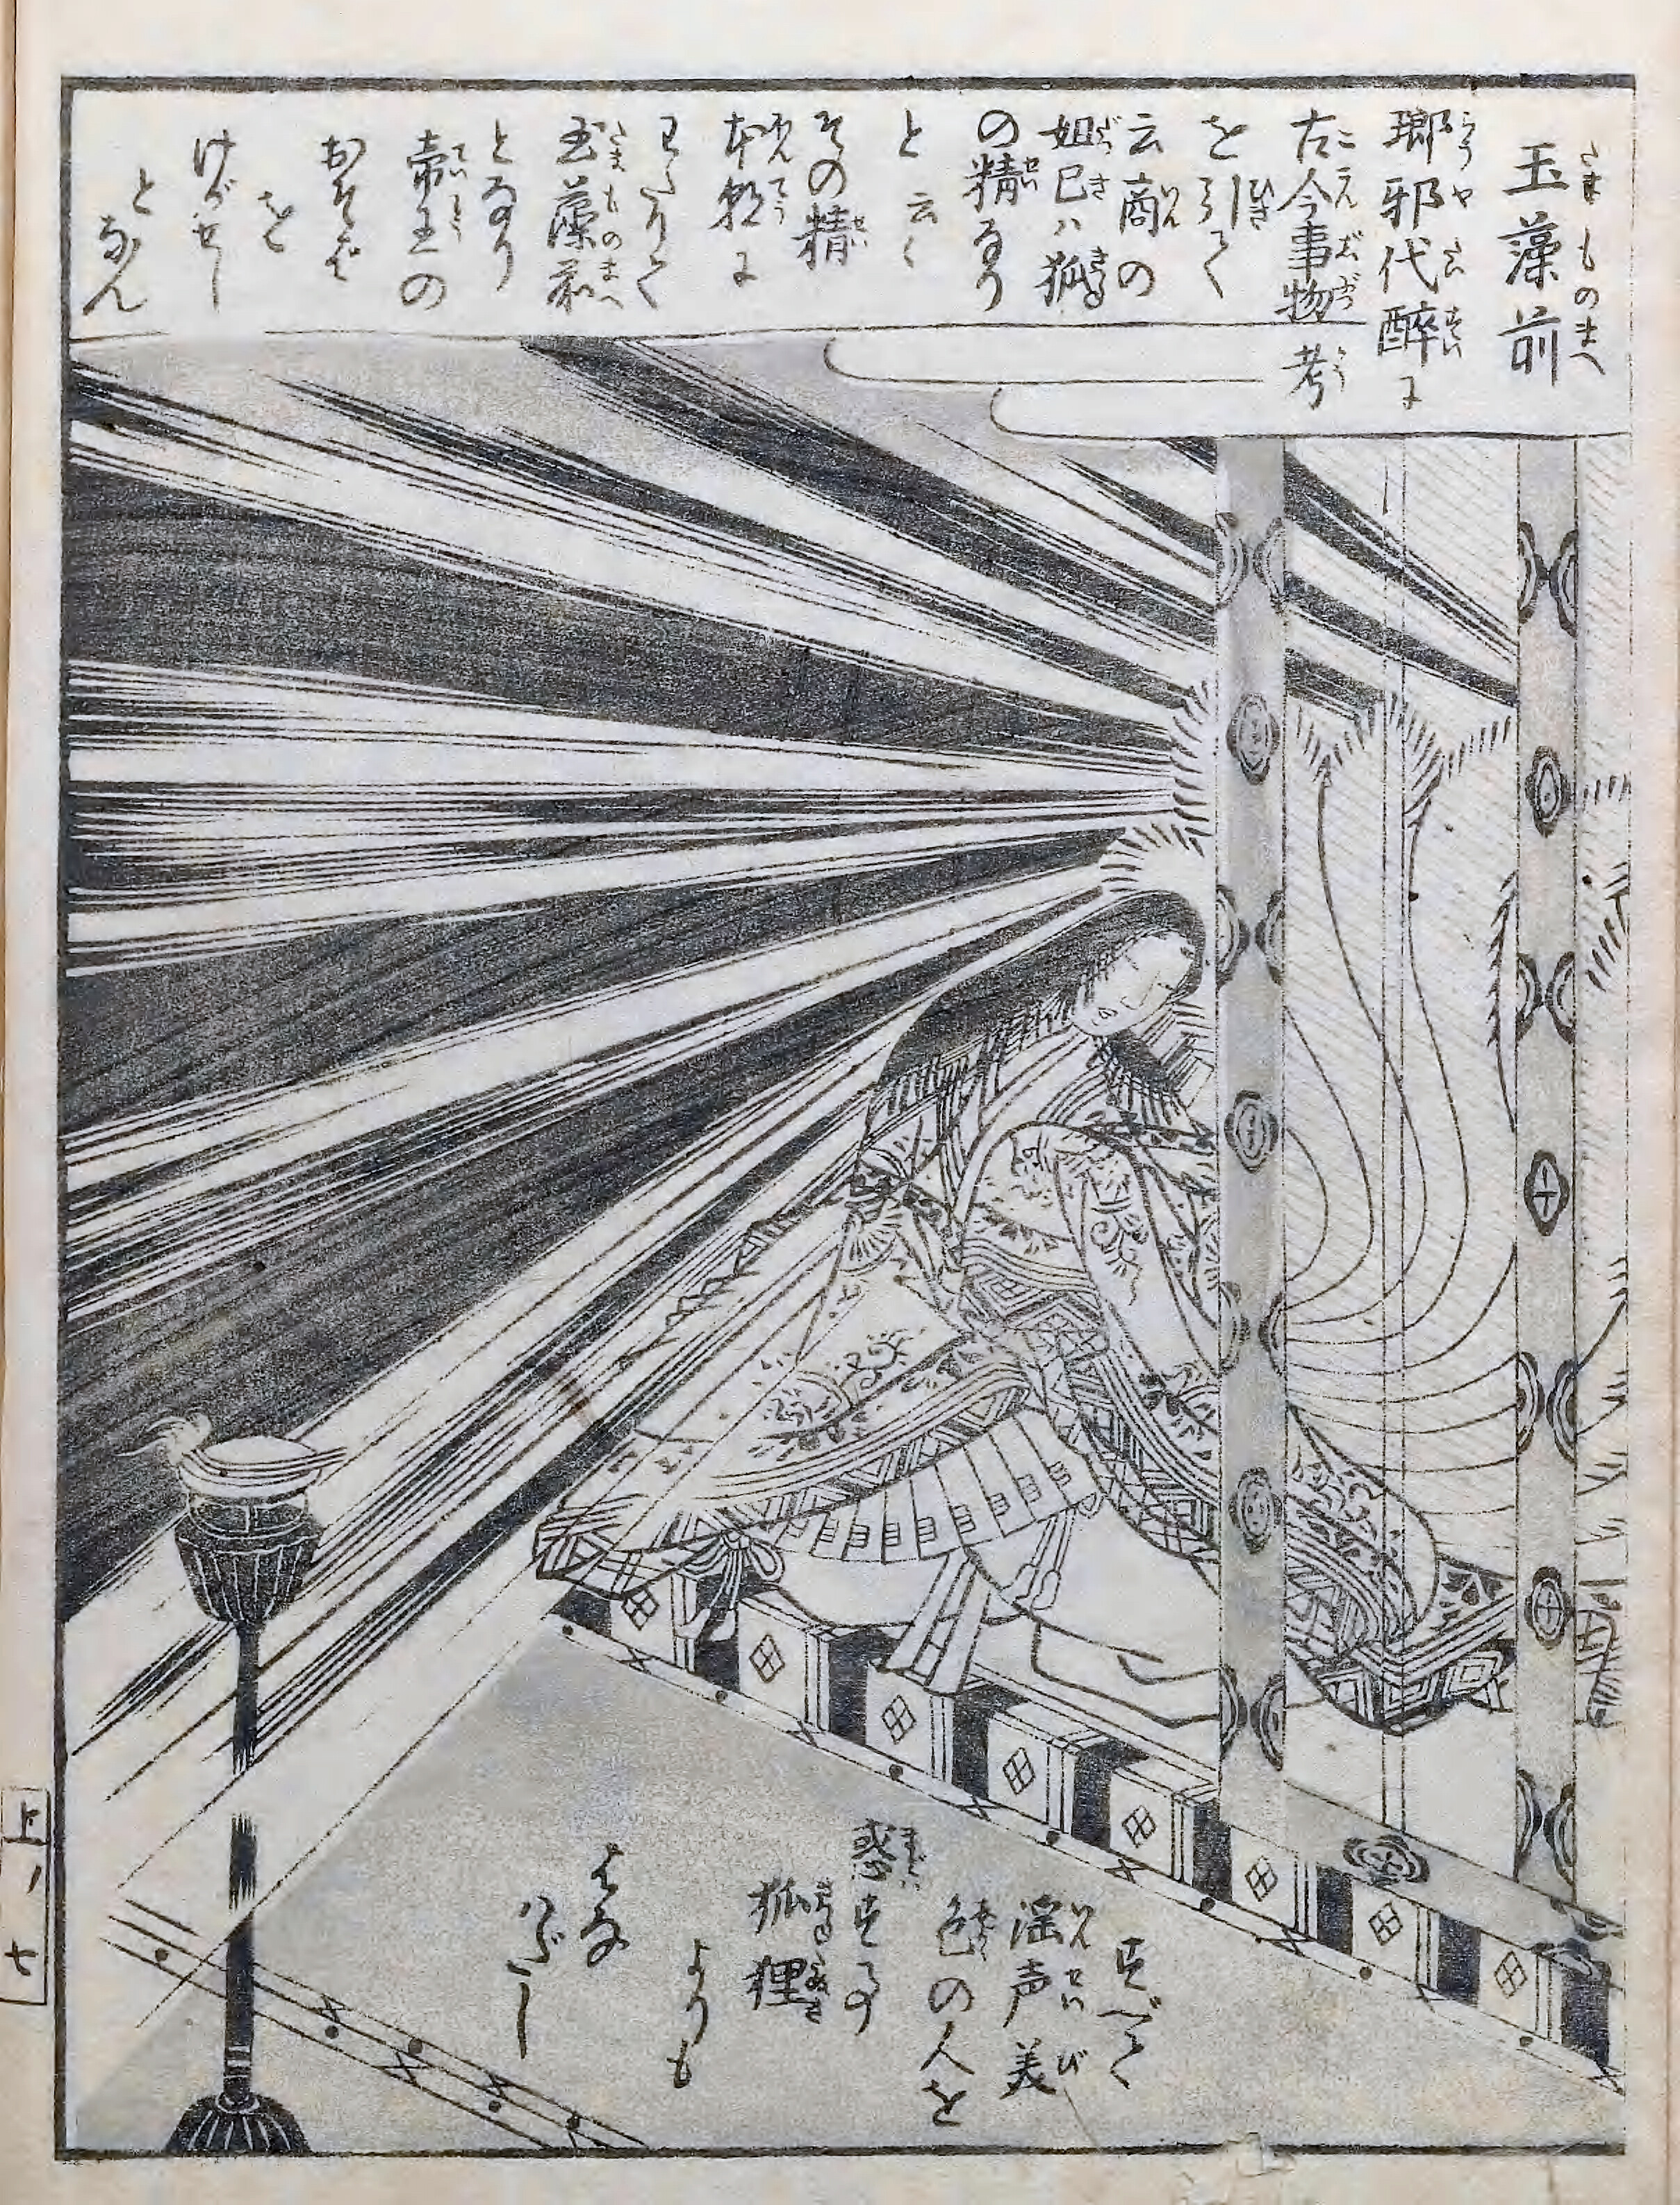 玉藻前
瑯邪代醉に
古今事物考
を引て
云商の
妲己ハ狐
の精なり
と云々
その精
本朝に
わたりて
玉藻前
となり
帝王の
おそば
を
けがせし
となん
すべて
淫声美
色の人を
惑す事
狐狸
よりも
はな
はだし
上ノ七